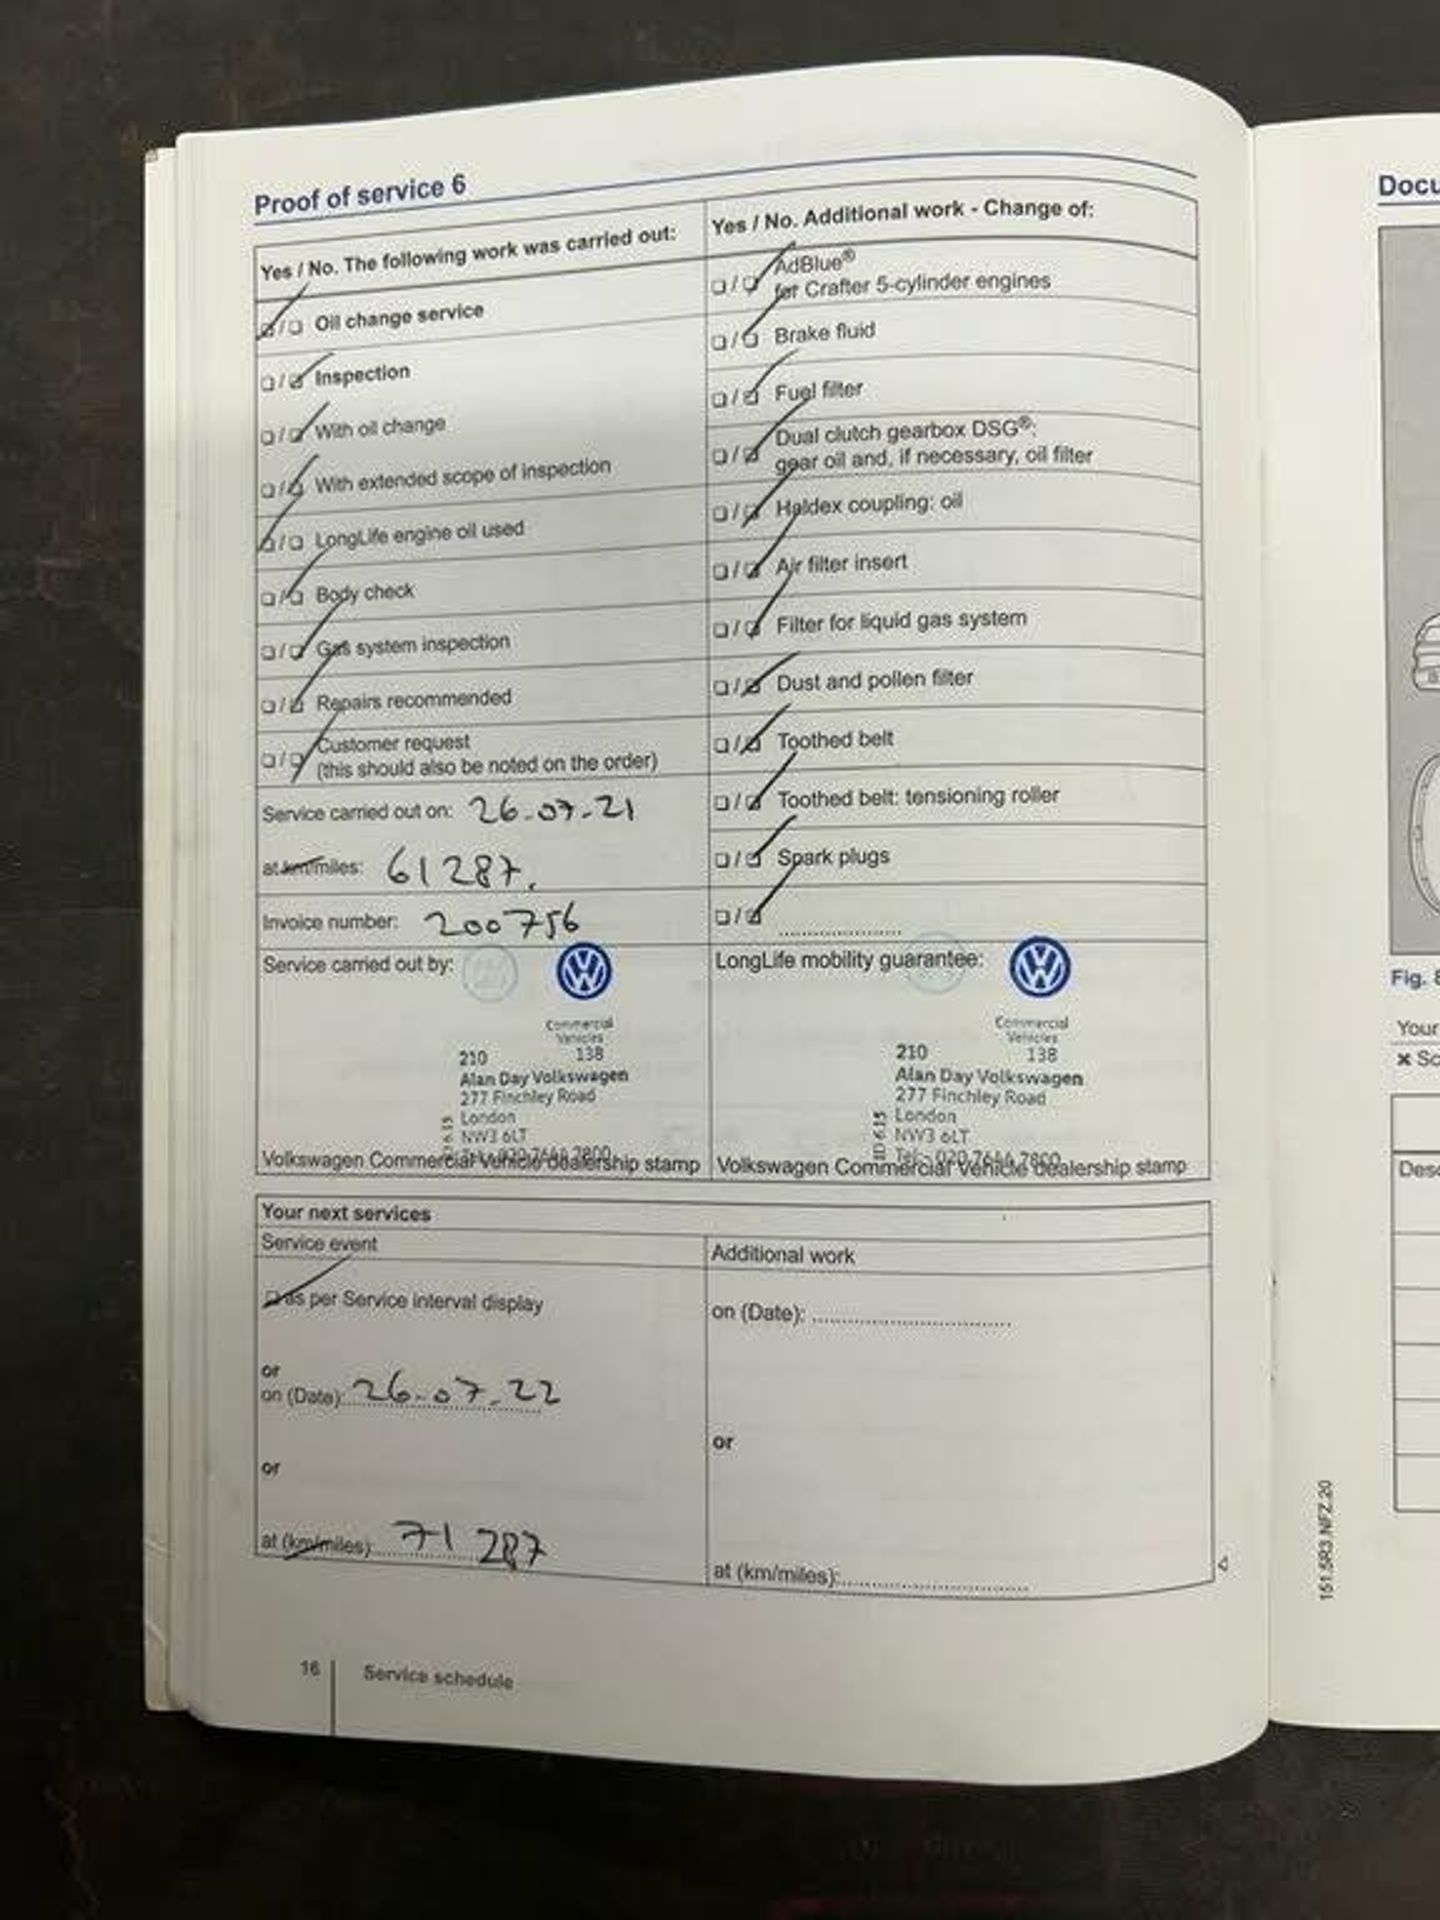 Proof of service 6
Yes / No. The following work was carried out:
❏/❏ Oil change service
❏/❏ Inspection
❏/❏ With oil change
❏/❏ With extended scope of inspection
❏/❏ LongLife engine oil used
❏/❏ Body check
❏/❏ Gas system inspection
❏/❏ Repairs recommended
❏/❏ Customer request
(this should also be noted on the order)
Service carried out on: 26-07-21
at km/miles: 61287.
Invoice number: 200756
Service carried out by:
Commercial
Vehicles
210 138
Alan Day Volkswagen
277 Finchley Road
London
NW3 6LT
Volkswagen Commercial Vehicle dealership stamp
Yes / No. Additional work - Change of:
❏/❏ AdBlue®
for Crafter 5-cylinder engines
❏/❏ Brake fluid
❏/❏ Fuel filter
❏/❏ Dual clutch gearbox DSG®:
gear oil and, if necessary, oil filter
❏/❏ Haldex coupling: oil
❏/❏ Air filter insert
❏/❏ Filter for liquid gas system
❏/❏ Dust and pollen filter
❏/❏ Toothed belt
❏/❏ Toothed belt: tensioning roller
❏/❏ Spark plugs
❏/❏ ....................
LongLife mobility guarantee:
Commercial
Vehicles
210 138
Alan Day Volkswagen
277 Finchley Road
London
NW3 6LT
Tel:- 020 7644 7800
ID 615
Volkswagen Commercial Vehicle dealership stamp
Your next services
Service event
❏ as per Service interval display
or
on (Date): 26-07-22
or
at (km/miles): 71 287
Additional work
on (Date): ..............................
or
at (km/miles): ..............................
16 Service schedule
Docu
Fig. 8
Your
✖ Sc
Desc
151.5R3.NFZ.20